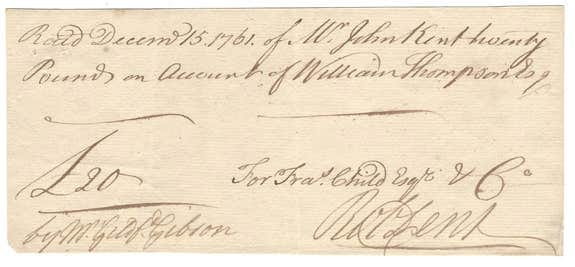 Recd Decemr 15. 1761. of Mr. John Kent twenty
Pounds on Account of William Thompson Esq
£20
For Fras. Child Esqr. & Co
by Wm. Gibson
Robt Dent